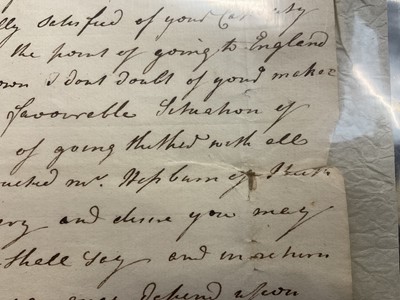 lly satisfied of your
the point of going to England
own I dont doubt of your make=
favourable Situation of
of going thither with all
ructed Mr. Hepburn of
ery and desire you may
shall Say and in return
Depend upon